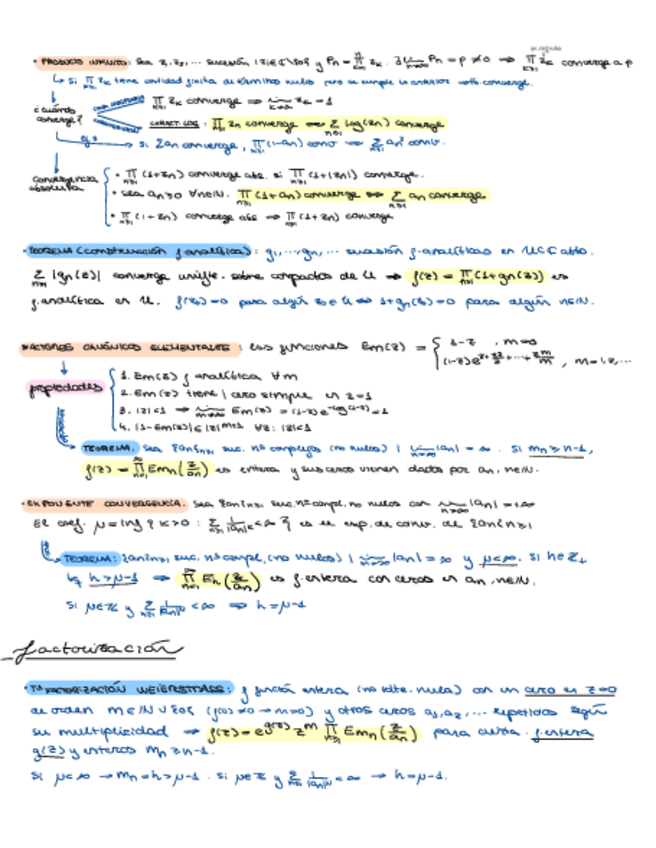 · PRODUCTO INFINITO: Sea z₁, z₂, ... sucesión (zᵢ ∈ ℂ\{0}) y Pn = ∏ₖ₌₁ⁿ zₖ. ∃ lim n→∞ Pn = p ≠ 0 ⟹ ∏ₖ≥₁ zₖ converge a p
↳ si ∏ₖ≥₁ zₖ tiene cantidad finita de términos nulos pero se cumple lo anterior converge.
¿cuándo converge?
∏ₖ≥₁ zₖ converge ⟹ lim k→∞ zₖ = 1
CARACT. LOG: ∏ₙ≥₁ zn converge ⟺ ∑ₙ≥₁ Log(zn) converge
si ∑an converge, ∏ₙ≥₁ (1-an) conv ⟺ ∑ₙ≥₁ an² conv.
convergencia absoluta
· ∏ₙ≥₁ (1+zn) converge abs. si ∏ₙ≥₁ (1+|zn|) converge.
· sea an ≥ 0 ∀n∈ℕ. ∏ₙ≥₁ (1+an) converge ⟺ ∑ₙ≥₁ an converge
· ∏ₙ≥₁ (1+zn) converge abs ⟹ ∏ₙ≥₁ (1+zn) converge
· TEOREMA (construcción f. analítica): g₁, ... gn, ... sucesión f. analíticas en U⊂ℂ abto.
∑ₙ≥₁ |gn(z)| converge unifte. sobre compactos de U ⟹ f(z) = ∏ₙ≥₁ (1+gn(z)) es
f. analítica en U. f(z₀)=0 para algún z₀∈U ⟺ 1+gn(z₀)=0 para algún n∈ℕ.
FACTORES CANÓNICOS ELEMENTALES: las funciones Em(z) = { 1-z , m=0
(1-z)e^(z+z²/2+...+zᵐ/m) , m=1,2,...
propiedades
1. Em(z) f analítica ∀m
2. Em(z) tiene 1 cero simple en z=1
3. |z|<1 ⟹ lim m→∞ Em(z) = (1-z)e^(-log(1-z)) = 1
4. |1-Em(z)| ≤ |z|ᵐ⁺¹ ∀z: |z|<1
TEOREMA. Sea {an}ₙ≥₁ suc. nº complejos (no nulos) | lim n→∞ |an| = ∞. Si mn ≥ n-1,
f(z) = ∏ₙ₌₁^∞ Emn(z/an) es entera y sus ceros vienen dados por an, n∈ℕ.
· EXPONENTE CONVERGENCIA. Sea {an}ₙ≥₁ suc. nº compl. no nulos con lim n→∞ |an| = +∞
El coef. μ = inf{k>0 : ∑ₙ≥₁ 1/|an|ᵏ < ∞} es el exp. de conv. de {an}ₙ≥₁
TEOREMA: {an}ₙ≥₁ suc. nº compl. (no nulos) | lim n→∞ |an| = ∞ y μ<∞. Si h∈ℤ₊
↳ h > μ-1 ⟹ ∏ₙ₌₁^∞ Eh(z/an) es f. entera con ceros en an, n∈ℕ.
Si μ∈ℤ y ∑ₙ≥₁ 1/|an|^μ < ∞ ⟹ h = μ-1
Factorización
· Tª FACTORIZACIÓN WEIERSTRASS: f función entera (no idte. nula) con un cero en z=0
de orden m∈ℕ∪{0} (f(0)≠0 → m=0) y otros ceros a₁, a₂, ... repetidos según
su multiplicidad ⟹ f(z) = e^g(z) zᵐ ∏ₙ≥₁ Emn(z/an) para cierta f. entera
g(z) y enteros mn ≥ n-1.
Si μ<∞ → mn = h > μ-1. Si μ∈ℤ y ∑ₙ≥₁ 1/|an|^μ < ∞ → h = μ-1.